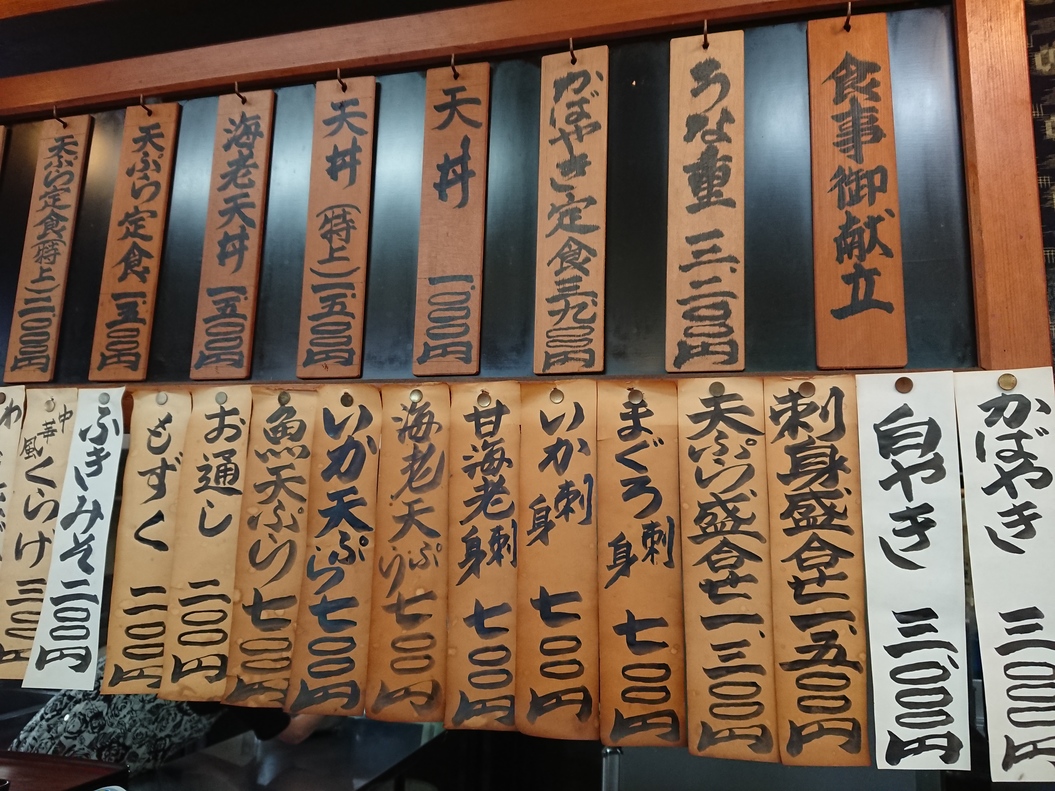 食事御献立
うな重 三、二〇〇円
かばやき定食 三、九〇〇円
天丼 一、〇〇〇円
天丼（特上）一、五〇〇円
海老天丼 一、五〇〇円
天ぷら定食 一、五〇〇円
天ぷら定食（特上）二、〇〇〇円
かばやき 三、〇〇〇円
白やき 三、〇〇〇円
刺身盛合せ 一、五〇〇円
天ぷら盛合せ 一、三〇〇円
まぐろ刺身 七〇〇円
いか刺身 七〇〇円
甘海老刺身 七〇〇円
海老天ぷら 七〇〇円
いか天ぷら 七〇〇円
魚天ぷら 七〇〇円
お通し 二〇〇円
もずく 二〇〇円
ふきみそ 二〇〇円
中華風くらげ 三〇〇円